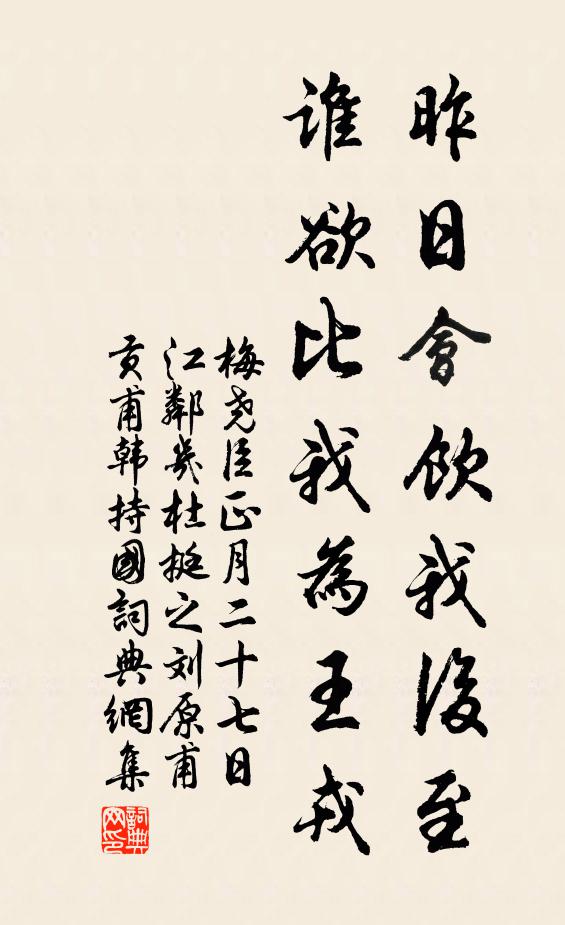 昨日會飲我後至
誰欲比我為王戎
梅尧臣正月二十七日
江鄰幾杜挺之刘原甫
贡甫韩持國詞典網集
詞典
网印